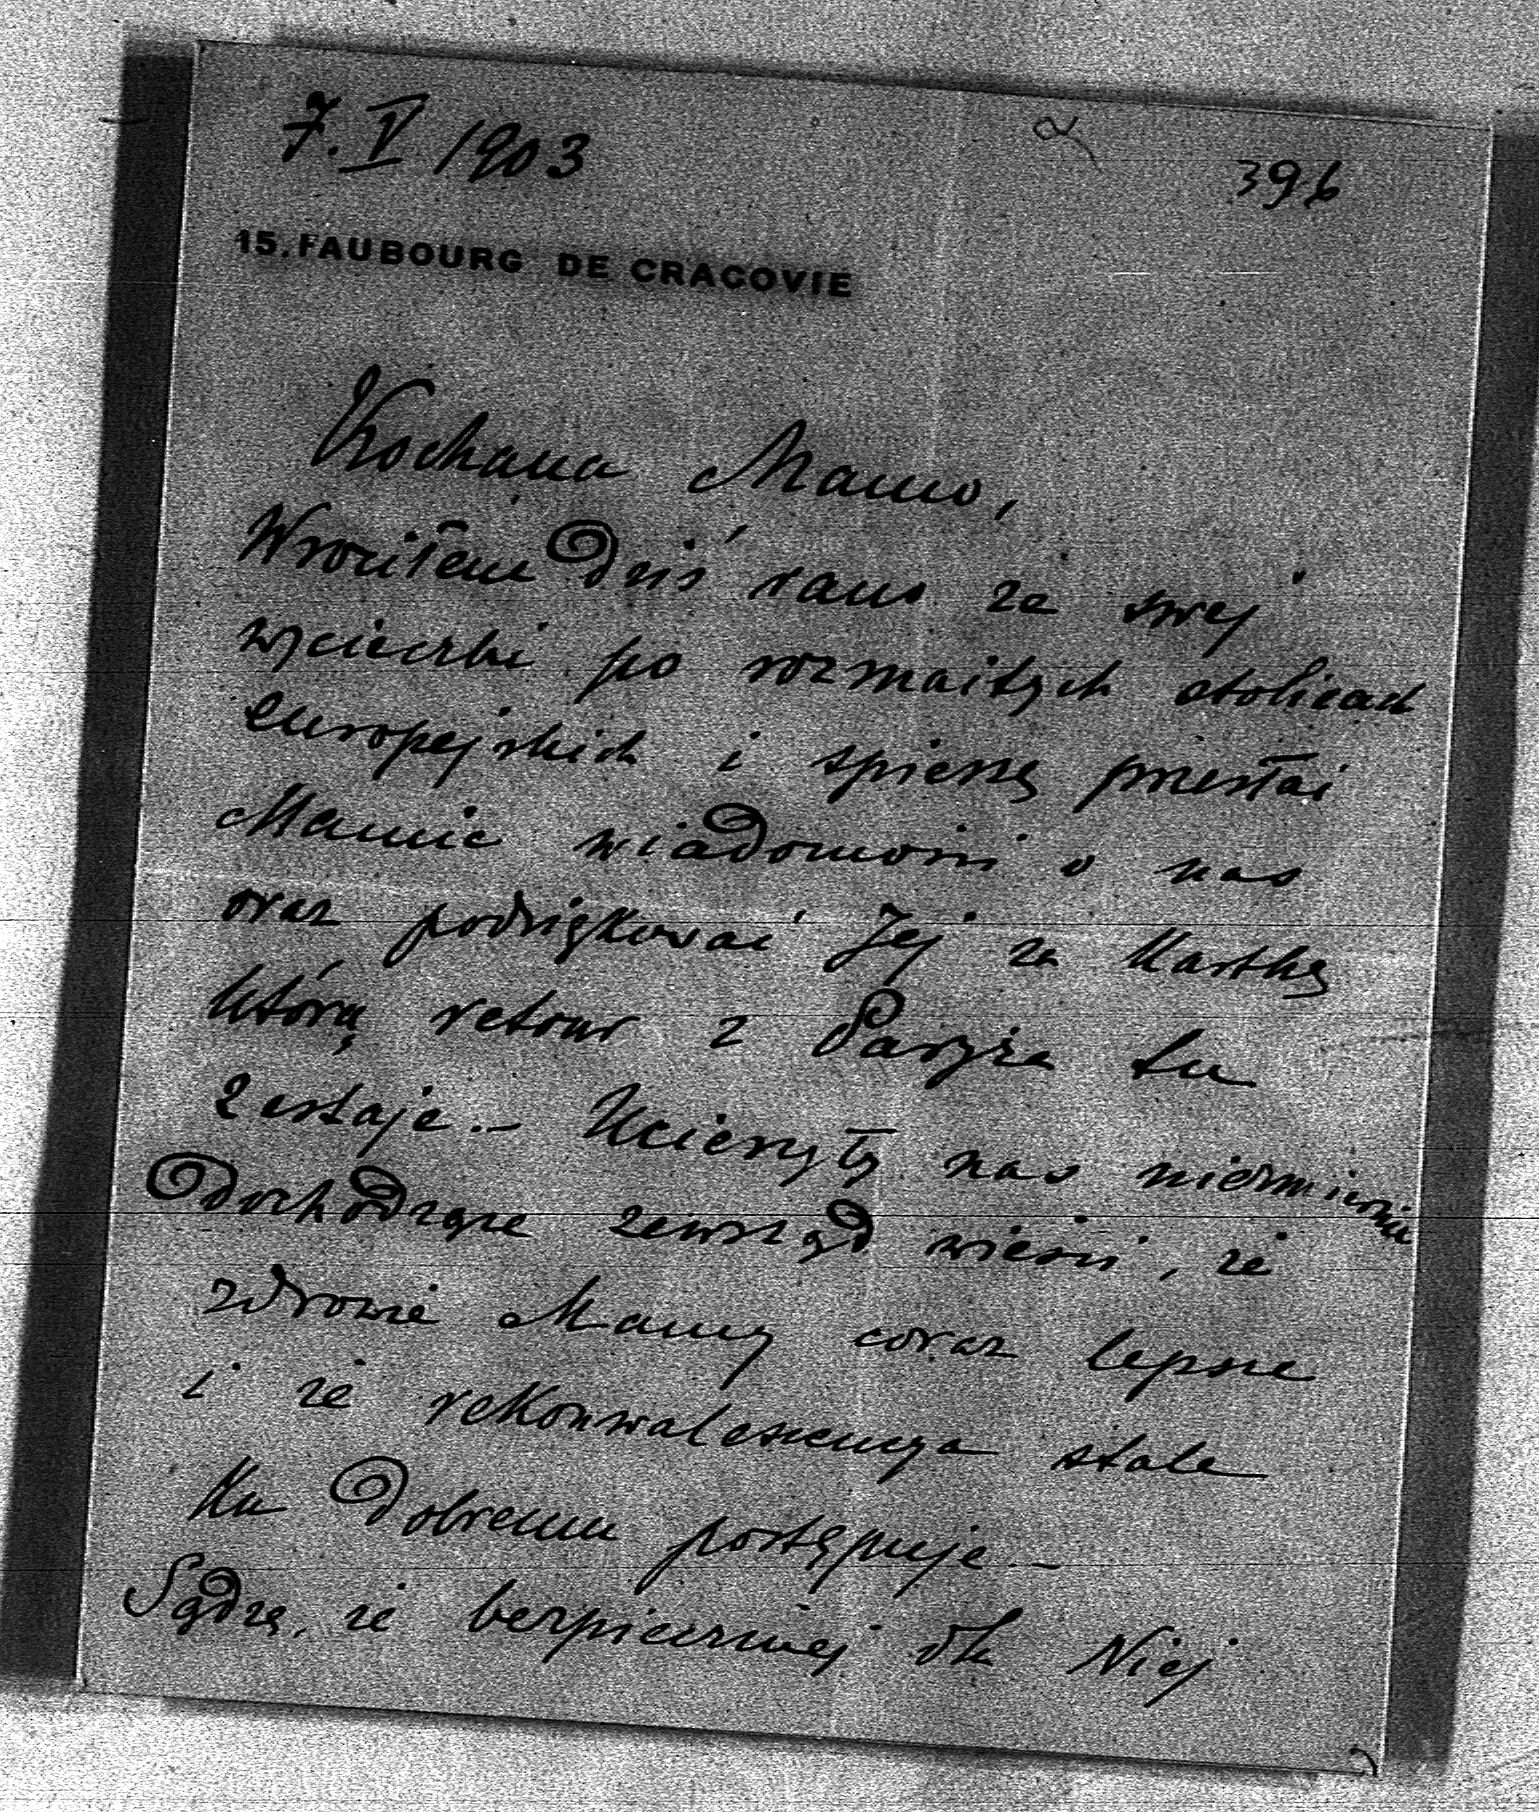 7. V 1903
396
15. FAUBOURG DE CRACOVIE
Kochana Mamo,
Wróciłem dziś rano ze swej
wycieczki po rozmaitych stolicach
europejskich i spieszę przesłać
Mamie wiadomości o nas
oraz podziękować Jej za kartkę
którą retour z Paryża tu
zastaję. – Ucieszyły nas niezmiernie
dochodzące zewsząd wieści, że
zdrowie Mamy coraz lepsze
i że rekonwalescencya stale
ku dobremu postępuje. –
Sądzę, że bezpieczniej dla Niej